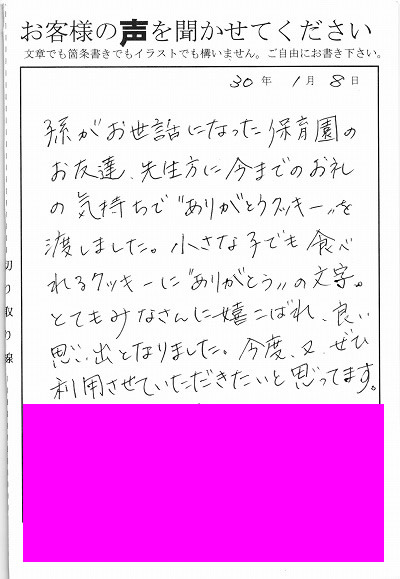 お客様の声を聞かせてください
文章でも箇条書きでもイラストでも構いません。ご自由にお書き下さい。
30年 1月 8日
孫がお世話になった保育園の
お友達、先生方に今までのお礼
の気持ちで"ありがとうクッキー"を
渡しました。小さな子でも食べ
れるクッキーに"ありがとう"の文字。
とてもみなさんに嬉こばれ、良い
思い出となりました。今度、又、ぜひ
利用させていただきたいと思ってます。
切り取り線